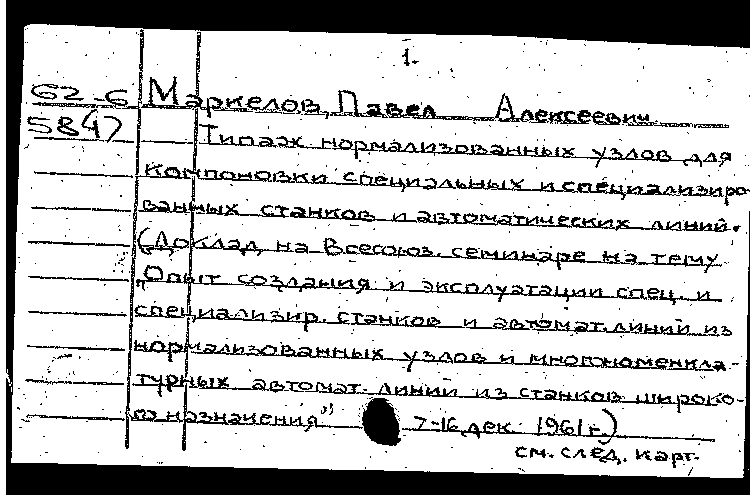 1.
62-6 Маркелов, Павел Алексеевич.
5847 Типаж нормализованных узлов для
компоновки специальных и специализиро-
ванных станков и автоматических линий.
(Доклад на Всесоюз. семинаре на тему
„Опыт создания и эксплуатации спец. и
специализир. станков и автомат. линий из
нормализованных узлов и многономенкла-
турных автомат. линий из станков широко-
го назначения" 7-16 дек. 1961 г.)
см. след. карт.